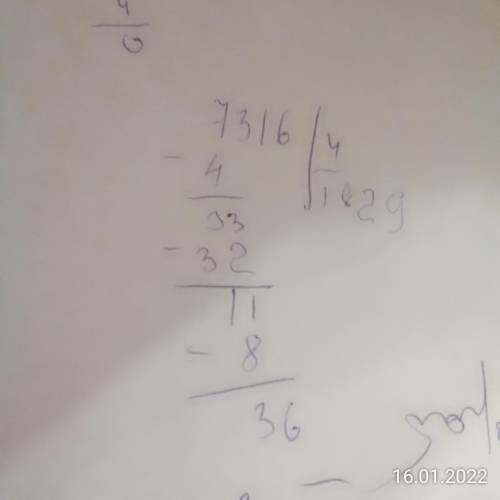 4
0
7316 | 4
- 4 1829
33
- 32
11
- 8
36
-
16.01.2022